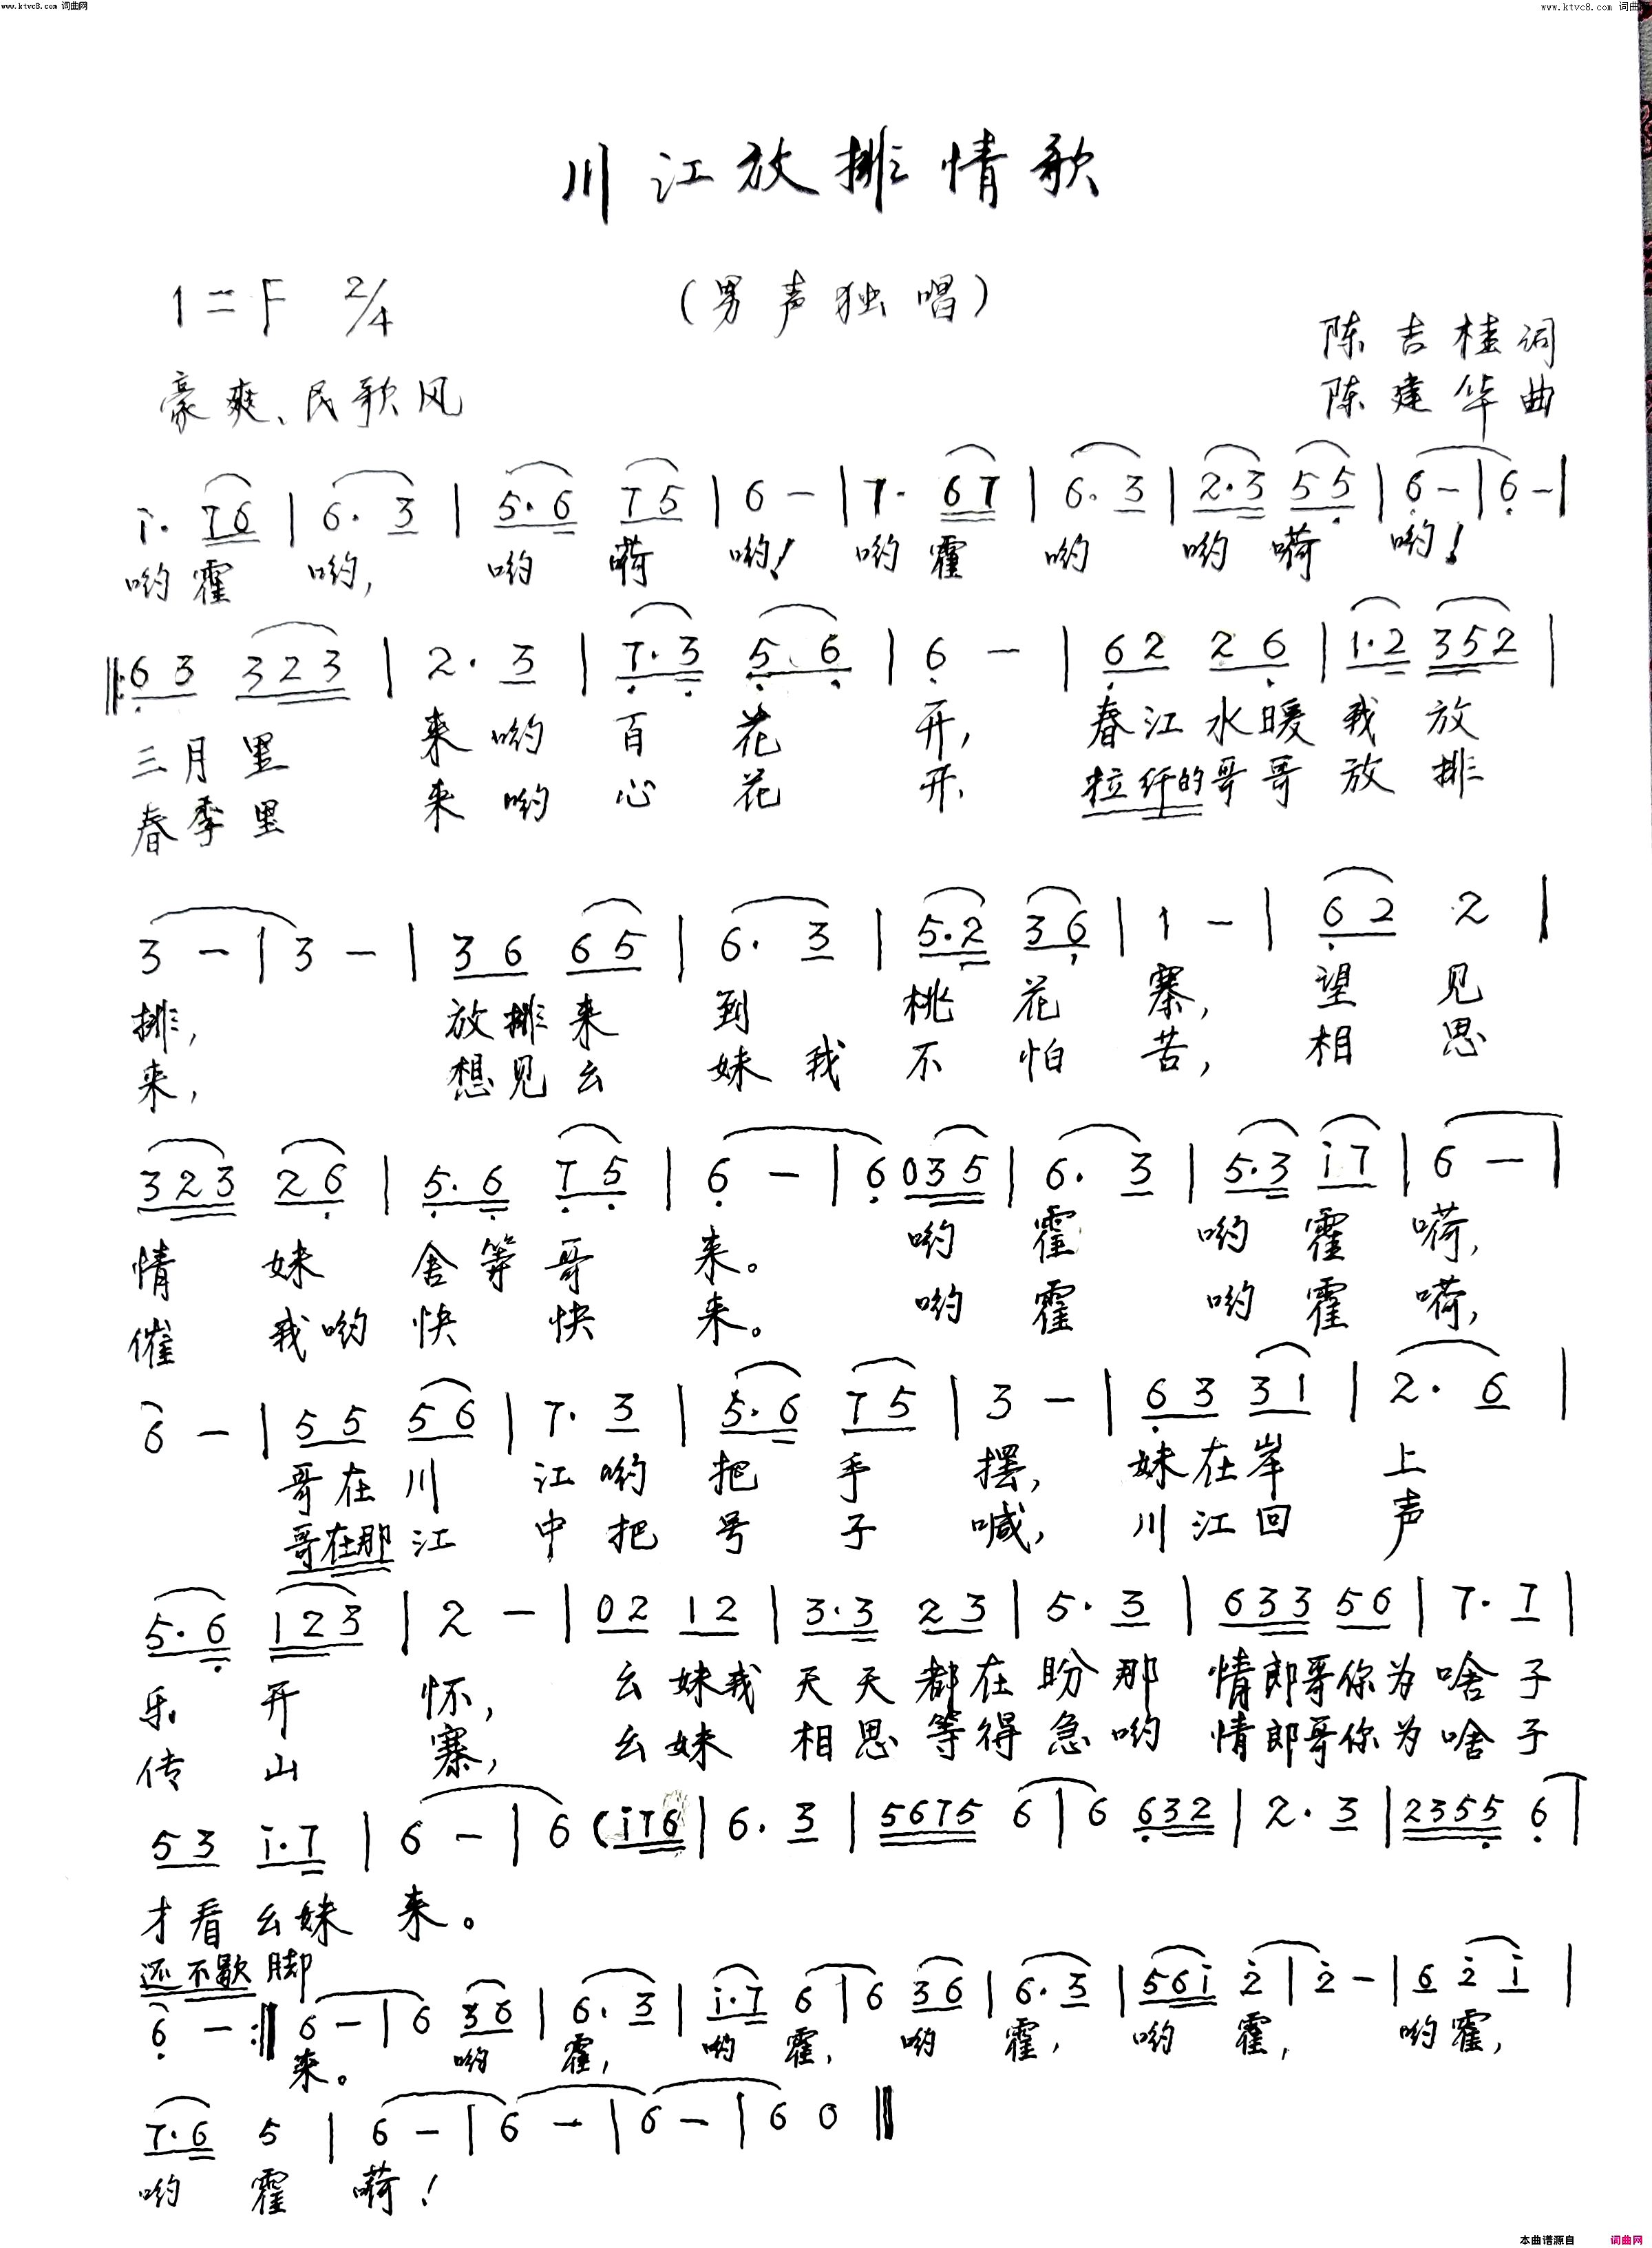 www.ktvc8.com 词曲网
www.ktvc8.com 词曲网
川江放排情歌
1=F 2/4
(男声独唱)
陈吉桂词
豪爽、民歌风
陈建华曲
i· 76 | 6· 3 | 5·6 75 | 6 - | 7· 67 | 6· 3 | 2·3 55 | 6 - | 6 - |
哟霍 哟, 哟 嗬 哟! 哟霍 哟 哟 嗬 哟!
‖: 63 323 | 2· 3 | 7·3 5 6 | 6 - | 62 26 | 1·2 352 |
三月里 来哟 百 花 开, 春江水暖 我 放
春季里 来哟 心 花 开, 拉纤的哥哥 放 排
3 - | 3 - | 36 65 | 6· 3 | 5·2 36 | 1 - | 62 2 |
排, 放排来 到 桃 花 寨, 望 见
来, 想见幺 妹我 不 怕 苦, 相 思
323 26 | 5·6 75 | 6 - | 6 035 | 6· 3 | 5·3 i7 | 6 - |
情 妹 舍等哥 来。 哟 霍 哟 霍 嗬,
催 我哟 快 快 来。 哟 霍 哟 霍 嗬,
6 - | 55 56 | 7· 3 | 5·6 75 | 3 - | 63 31 | 2· 6 |
哥在川 江哟 把 手 摆, 妹在岸 上
哥在那江 中把 号 子 喊, 川江回 声
5·6 123 | 2 - | 02 12 | 3·3 23 | 5· 3 | 633 56 | 7· 7 |
乐 开 怀, 幺妹我 天天都在盼那 情郎哥你为啥子
传 山 寨, 幺妹 相思等得急哟 情郎哥你为啥子
53 i·7 | 6 - | 6 (i76 | 6· 3 | 5675 6 | 6 632 | 2· 3 | 2355 6 |
才看幺妹 来。
还不歇脚
6 - :‖ 6 - | 6 36 | 6· 3 | i·7 6 | 6 36 | 6· 3 | 56i 2 | 2 - | 6 2 i |
来。 哟 霍, 哟 霍, 哟 霍, 哟 霍, 哟霍,
7·6 5 | 6 - | 6 - | 6 - | 6 0 ‖
哟 霍 嗬!
本曲谱源自 词曲网